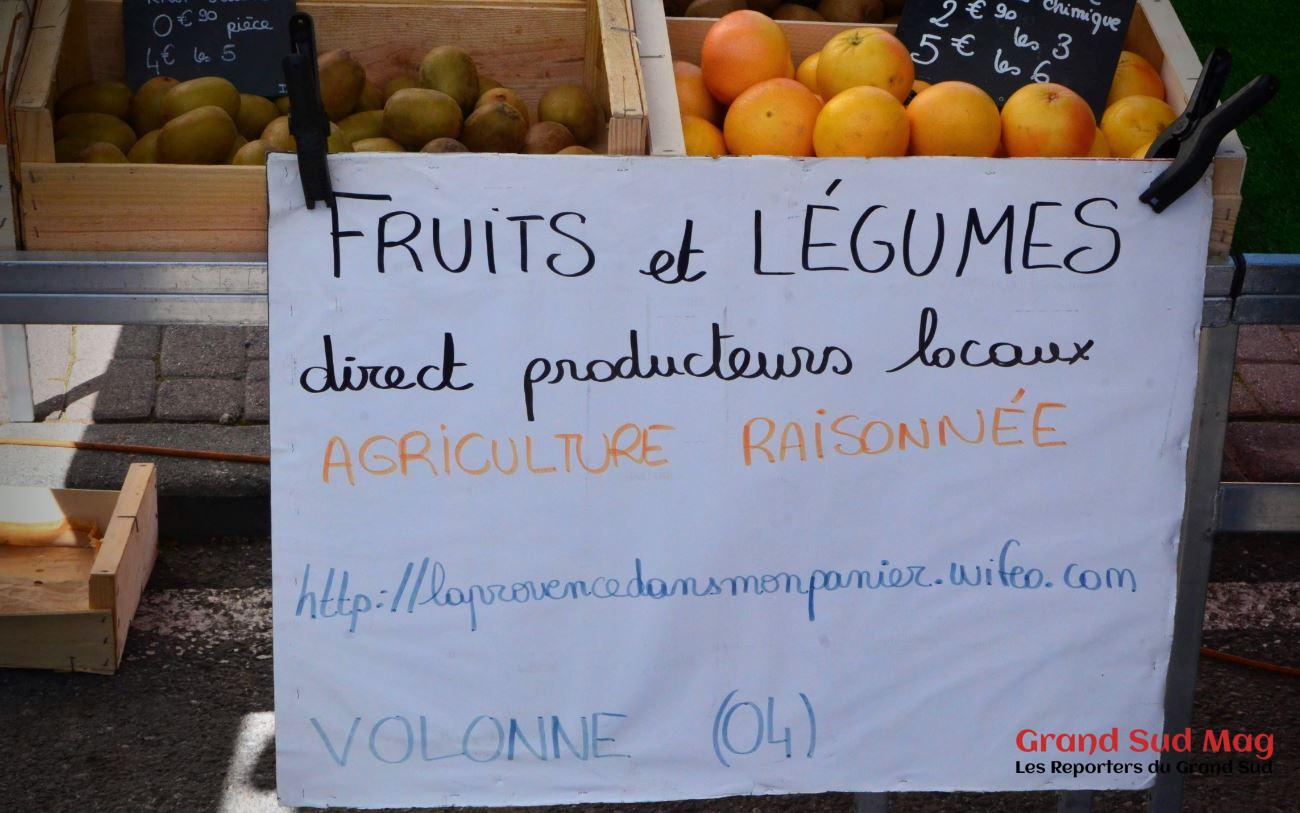 0€90 pièce
4€ les 5
chimique
2€90 les 3
5€ les 6
FRUITS et LÉGUMES
direct producteurs locaux
AGRICULTURE RAISONNÉE
http://laprovencedansmonpanier.wifeo.com
VOLONNE (04)
Grand Sud Mag
Les Reporters du Grand Sud